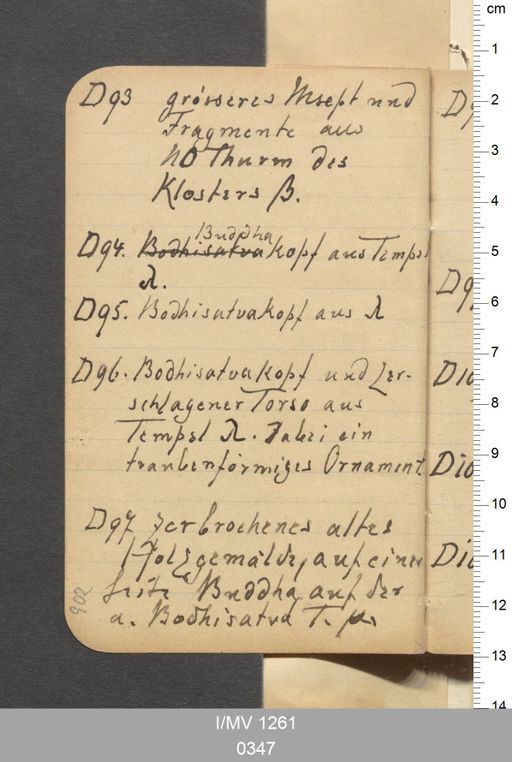 D93 grösseres Mscpt und
Fragmente aus
NO Thurm des
Klosters β.
Buddha
D94. Bodhisatvakopf aus Tempel
λ.
D95. Bodhisatvakopf aus λ
D96. Bodhisatvakopf und zer-
schlagener Torso aus
Tempel λ. Dabei ein
traubenförmiges Ornament.
D97 Zerbrochenes altes
Holzgemälde, auf einer
Seite Buddha, auf der
a. Bodhisatva T. μ.
902
cm
1
2
3
4
5
6
7
8
9
10
11
12
13
14
I/MV 1261
0347